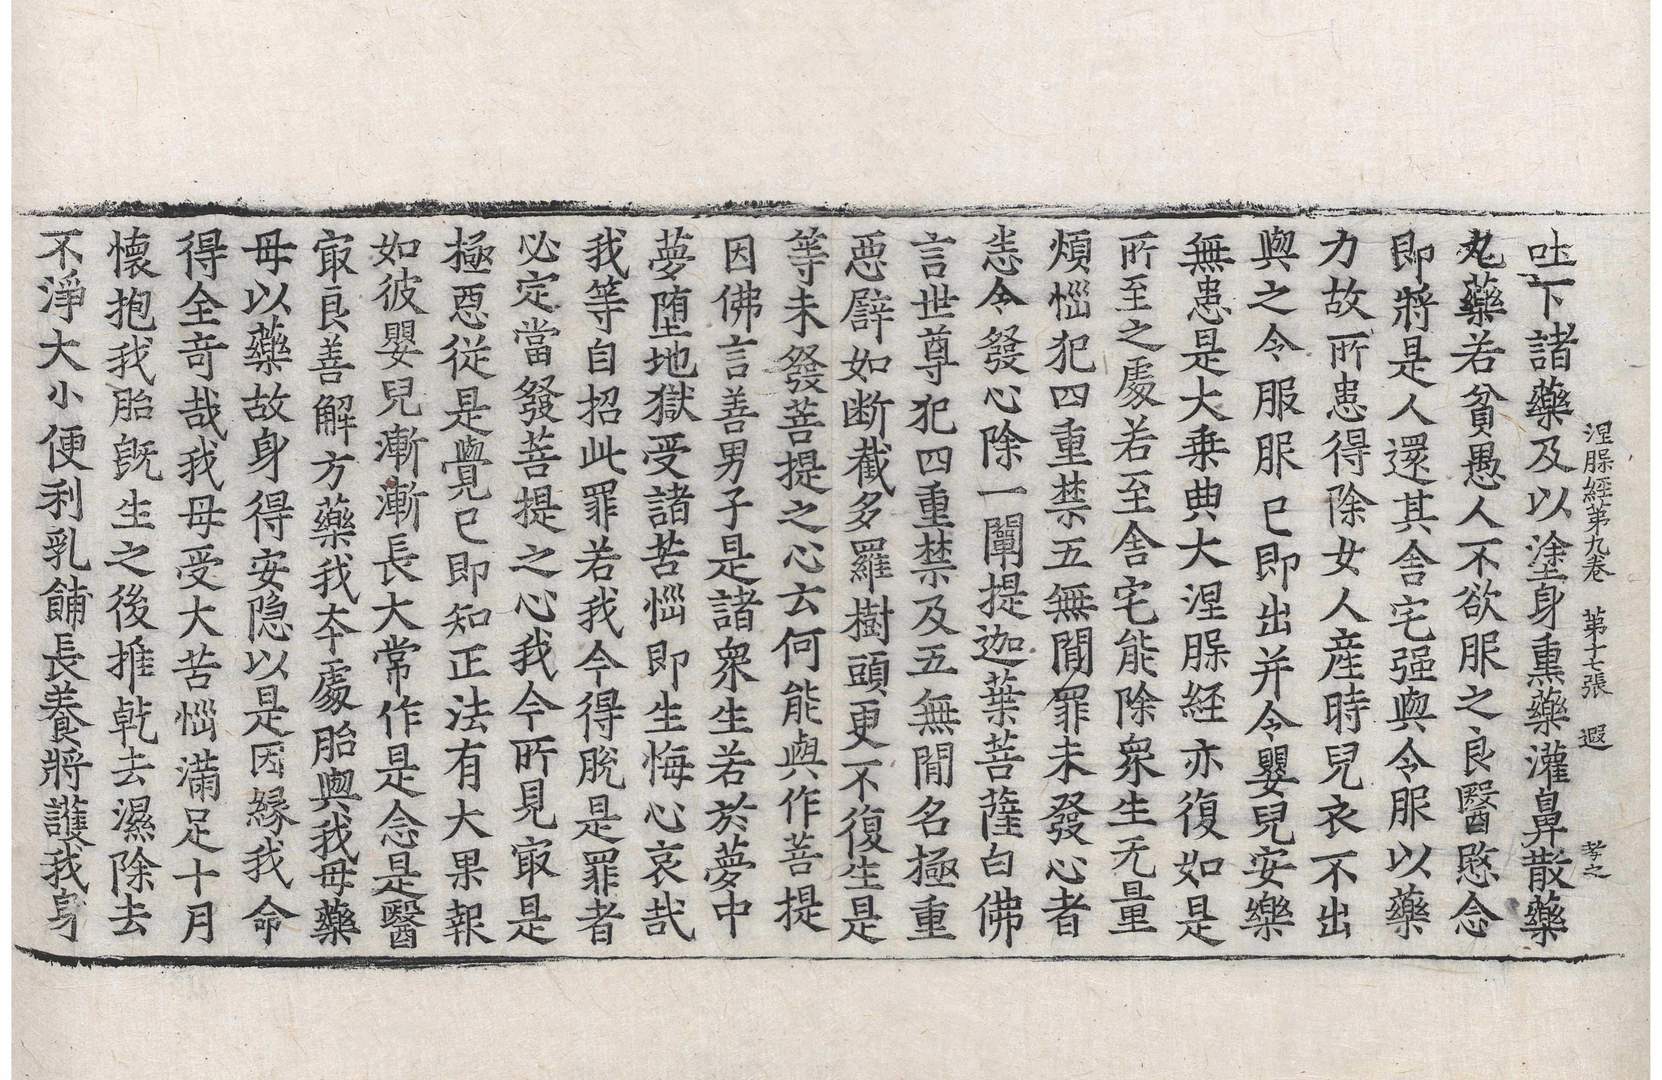 涅脲經第九卷 第十七張 遐 孝之
吐下諸藥及以塗身熏藥灌鼻散藥
丸藥若貧愚人不欲服之良醫愍念
即將是人還其舍宅强與令服以藥
力故所患得除女人產時兒衣不出
與之令服服已即出并令嬰兒安樂
無患是大乗典大涅脲經亦復如是
所至之處若至舍宅能除衆生无量
煩惱犯四重禁五無閒罪未發心者
悉令發心除一闡提迦葉菩薩白佛
言世尊犯四重禁及五無閒名極重
惡譬如断截多羅樹頭更不復生是
等未發菩提之心云何能與作菩提
因佛言善男子是諸衆生若於夢中
夢堕地獄受諸苦惱即生悔心哀哉
我等自招此罪若我今得脫是罪者
必定當發菩提之心我今所見㝡是
極惡從是覺已即知正法有大果報
如彼嬰兒漸漸長大常作是念是醫
㝡良善解方藥我夲處胎與我母藥
母以藥故身得安隐以是因緣我命
得全竒哉我母受大苦惱滿足十月
懷抱我胎旣生之後推乹去濕除去
不淨大小便利乳餔長養將護我身